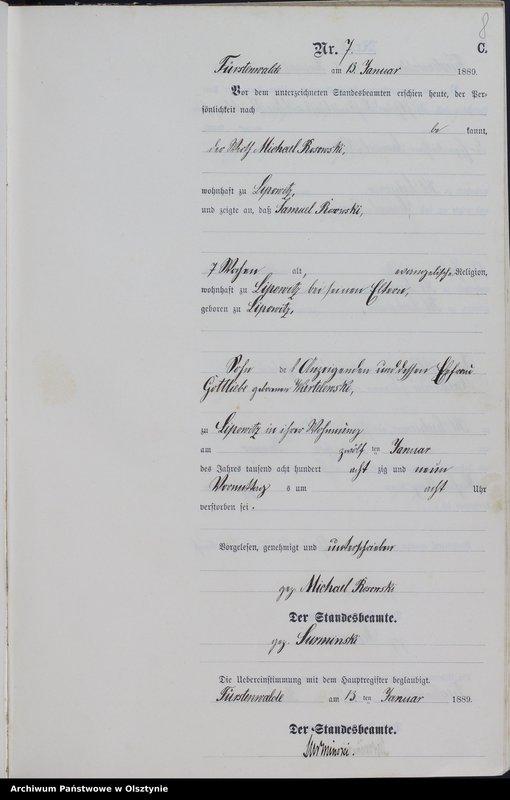 8
Nr. 7. C.
Fürstenwalde am 13. Januar 1889.
Vor dem unterzeichneten Standesbeamten erschien heute, der Per-
sönlichkeit nach
be kannt,
der Wirth Michael Rosowski,
wohnhaft zu Lipowitz,
und zeigte an, daß Samuel Rosowski,
7 Wochen alt, evangelischer Religion,
wohnhaft zu Lipowitz bei seinen Eltern,
geboren zu Lipowitz,
Sohn des Anzeigenden und dessen Ehefrau
Gottliebe geborenen
zu Lipowitz in ihrer Wohnung
am zwölf ten Januar
des Jahres tausend acht hundert acht zig und neun
Vormittag s um acht Uhr
verstorben sei.
Vorgelesen, genehmigt und unterschrieben
gez. Michael Rosowski
Der Standesbeamte.
gez. Surminski
Die Uebereinstimmung mit dem Hauptregister beglaubigt.
Fürstenwalde am 13. ten Januar 1889.
Der Standesbeamte.
Surminski.
Archiwum Państwowe w Olsztynie